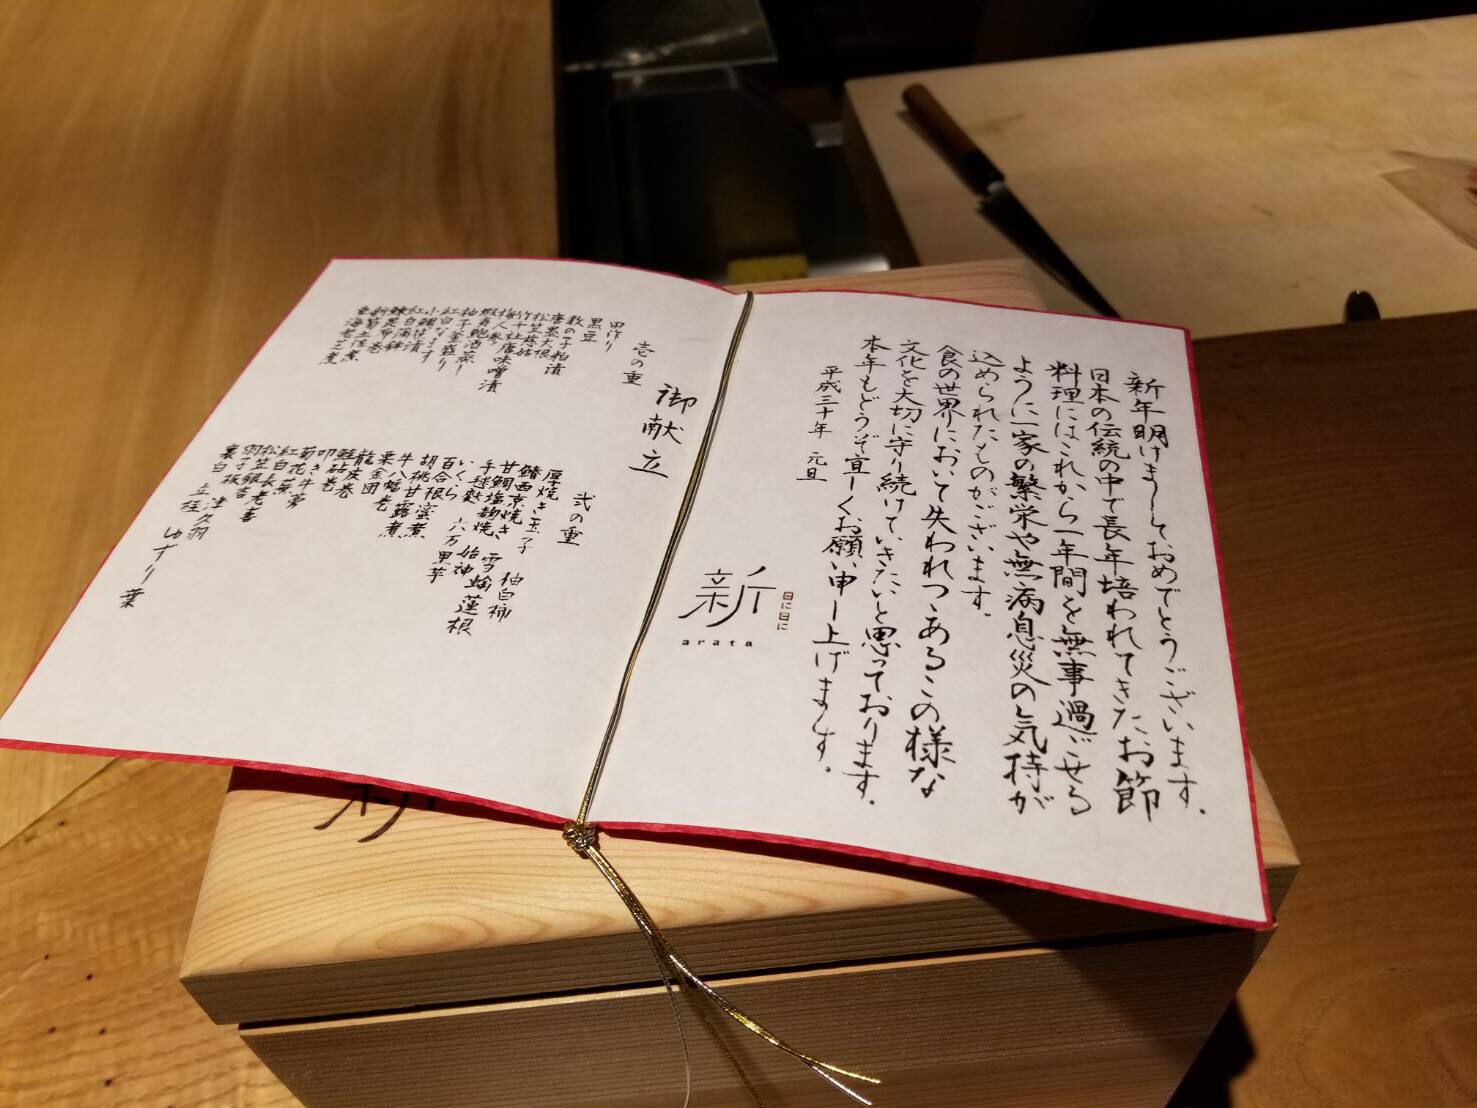 新年明けましておめでとうございます。
日本の伝統の中で長年培われてきたお節
料理にはこれから一年間を無事過ごせる
ように一家の繁栄や無病息災の気持が
込められたものがございます。
食の世界において失われつつあるこの様な
文化を大切に守り続けていきたいと思っております。
本年もどうぞ宜しくお願い申し上げます。
平成三十年 元旦
新
日に日に
arata
御献立
壱の重
田作り
黒豆
数の子粕漬
唐墨大根
松笠慈姑
竹千社唐味噌漬
梅人参
蝦夷鮑酒蒸し
柚子釜盛り
紅白なます
小鯛笹漬
紅白蒲鉾
鰊昆布巻
新筍土佐煮
車海老芝煮
弐の重
厚焼き玉子
鰆西京焼き 柚白柿
甘鯛塩麹焼 雪輪蓮根
手毬麩
いくら 六方里芋
百合根
胡桃甘露煮
牛八幡巻
栗金団
龍皮巻
鮭砧巻
叩き牛蒡
菊花蕪
紅白
松笠長老喜
羽子板
裏白
ゆずり葉
新